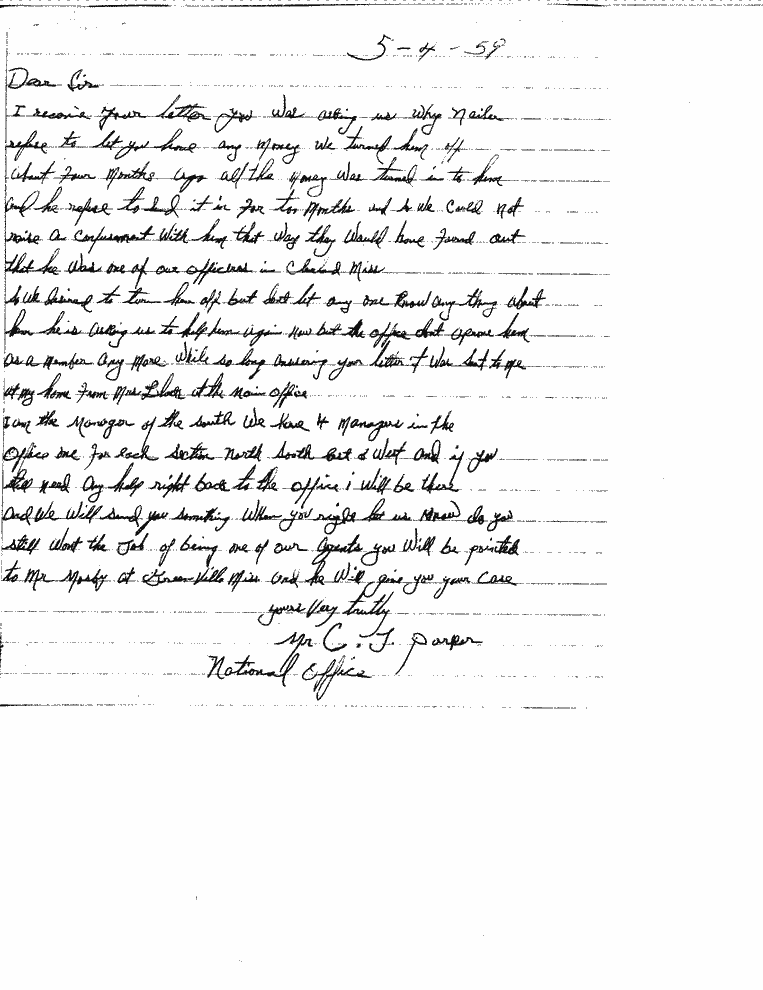 5-4-59
Dear Sir
I receive your letter you was asking us why Nailer
refuse to let you have any money We turned him off
about Four Months ago all the money Was turned in to him
and he refuse to it in For too Months and so We Could Not
raise a Confusement With him that Way they Would have Found out
that he Was one of our officers in Miss
So We to turn him off but dont let any one Know any thing about
him he is asking us to help him again Now but the office dont him
as a Member Any More While so long answering your letter it Was sent to me
at My home From Mrs at the Main office
I am the Manager of the South We have 4 Managers in the
Office one For each section North South East & West and if you
still need any help right back to the office i Will be there
and We Will send you something When you right let us Know do you
still Want the Job of being one of our Agents you Will be pointed
to Mr Mosby at GreenVille Miss and he Will give you your Case
yours Very truly
Mr C. J. Parker
National Office